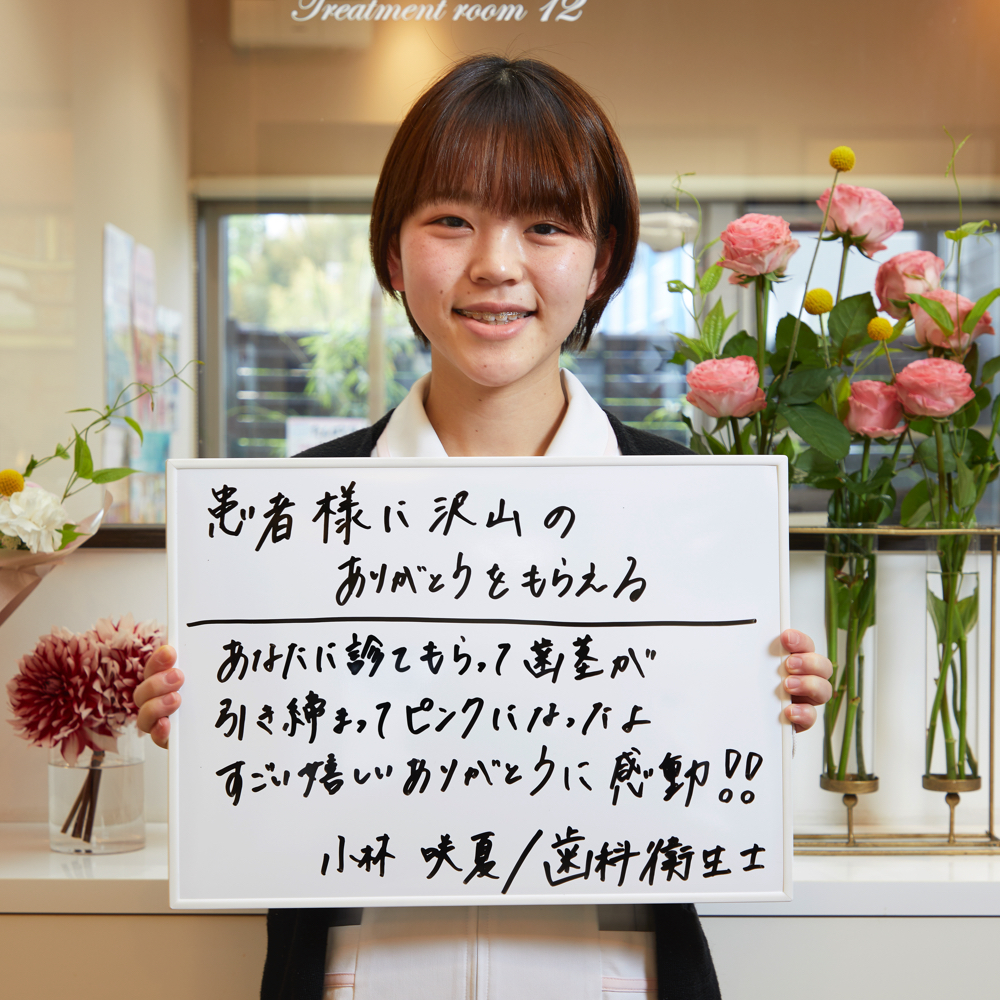 Treatment room 12
患者様に沢山の
ありがとうをもらえる
あなたに診てもらって歯茎が
引き締まってピンクになったよ
すごい嬉しいありがとうに感動!!
小林 咲夏/歯科衛生士